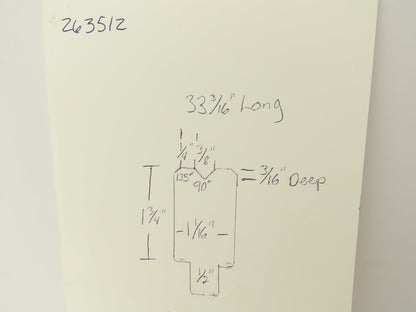 263512
33 3/16" Long
1/4" 3/8"
135° 90°
3/16" Deep
1 3/4"
1 1/16"
1/2"